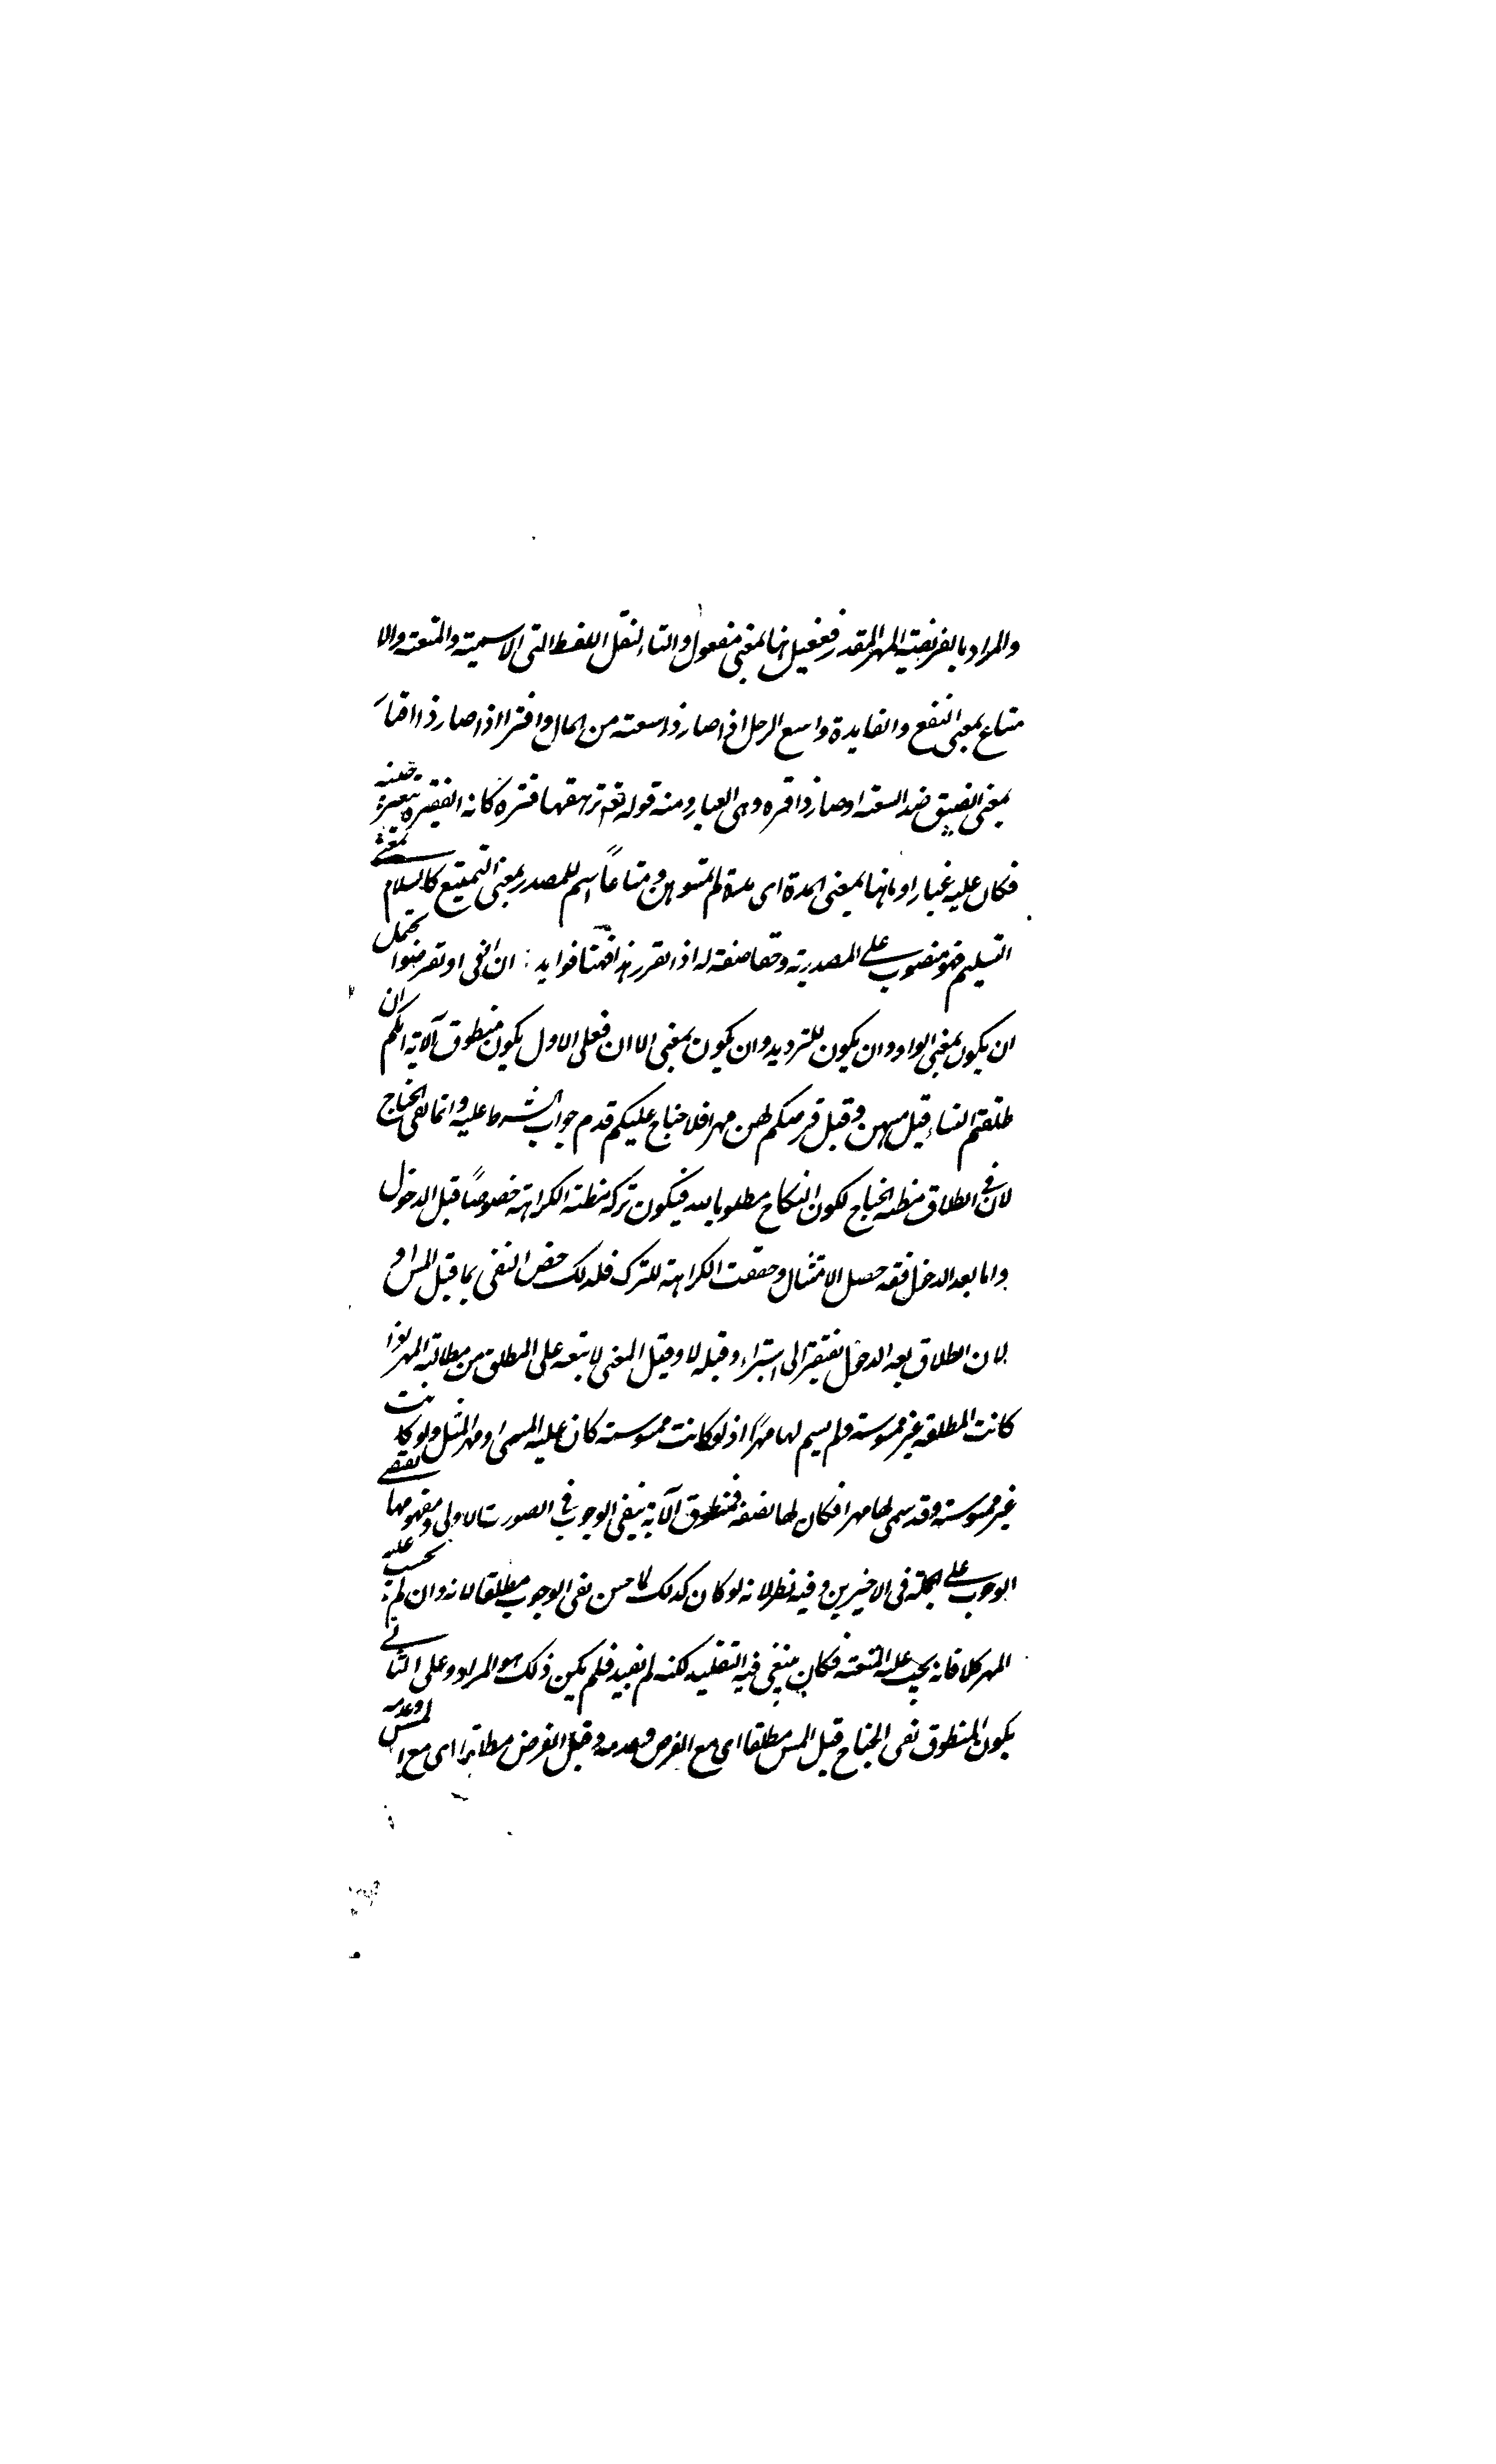 والمراد بالفريضة المهر المقدر ففعيل انها بمعنى مفعول والتاء لنقل اللفظ التى الاسمية والمتعة والا
متاع بمعنى النفع والفايدة واسع الرجل اذا صار ذا سعته من المال واقتر ااذا صار ذا اقتا
بمعنى الضيق ضد السعته او صار ذا قتره وهى الغبار ومنه قوله تعم ترهقها قتره كانه الفقيره تغيرة حينه
فكان عليه غبار او بانها بمعنى المدة اى مدة لم تمسوهن ومتاعاً اسم للمصدر بمعنى التمتيع كالسلام بمعنى
التسليم فهو منصوب على المصدرية وحقا صفته له اذا تقرر هذا فهنا فوايد : ان الفى او تفرضوا تحتمل
ان يكون بمعنى الواو وان يكون للترديد وان يكون بمعنى الا ان فعلى الاول يكون منطوق الاية انكم ان
طلقتم النساء قبل مسهن وقبل فرضكم لهن مهرا فلا جناح عليكم قدم جواب الشرط عليه وانما نفى الجناح
لان فى الطلاق مظنه الجناح لكون النكاح مطلوبا لله فيكون تركه مظنته الكراهة خصوصاً قبل الدخول
واما بعد الدخول فقد حصل الامتثال وحققت الكراهة للترك فلذلك خص النفى بما قبل المس او
لان الطلاق بعد الدخول يفتقر الى استبراء وقبله لا وقيل المعنى لا تبعه على المطلق من مطالبة المهر اذا
كانت المطلقة غير ممسوسته ولم يسم لها مهرًا اذ لو كانت ممسوسته كان عليه المسمى او مهر المثل ولو كانت
غير ممسوسته وقد سمى لها مهرا فكان لها نصفه فمنطوق الآية ينفى الوجوب فى الصورت الاولى ومفهومها يقتضى
الوجوب على الجملة فى الاخيرين وفيه نظر لانه لو كان كذلك لما حسن نفى الوجوب مطلقا لانه وان لم يجب عليه
المهر كلا فانه يجب عليه المتعته فكان ينبغى فيه التقييد لكنه لم يقيد فلم يكن ذلك هو المراد وعلى الثانى
يكون المنطوق نفى الجناح قبل المس مطلقا اى مع الفرض وعدمه وقبل الفرض مطلقا اى مع المس وعدمه